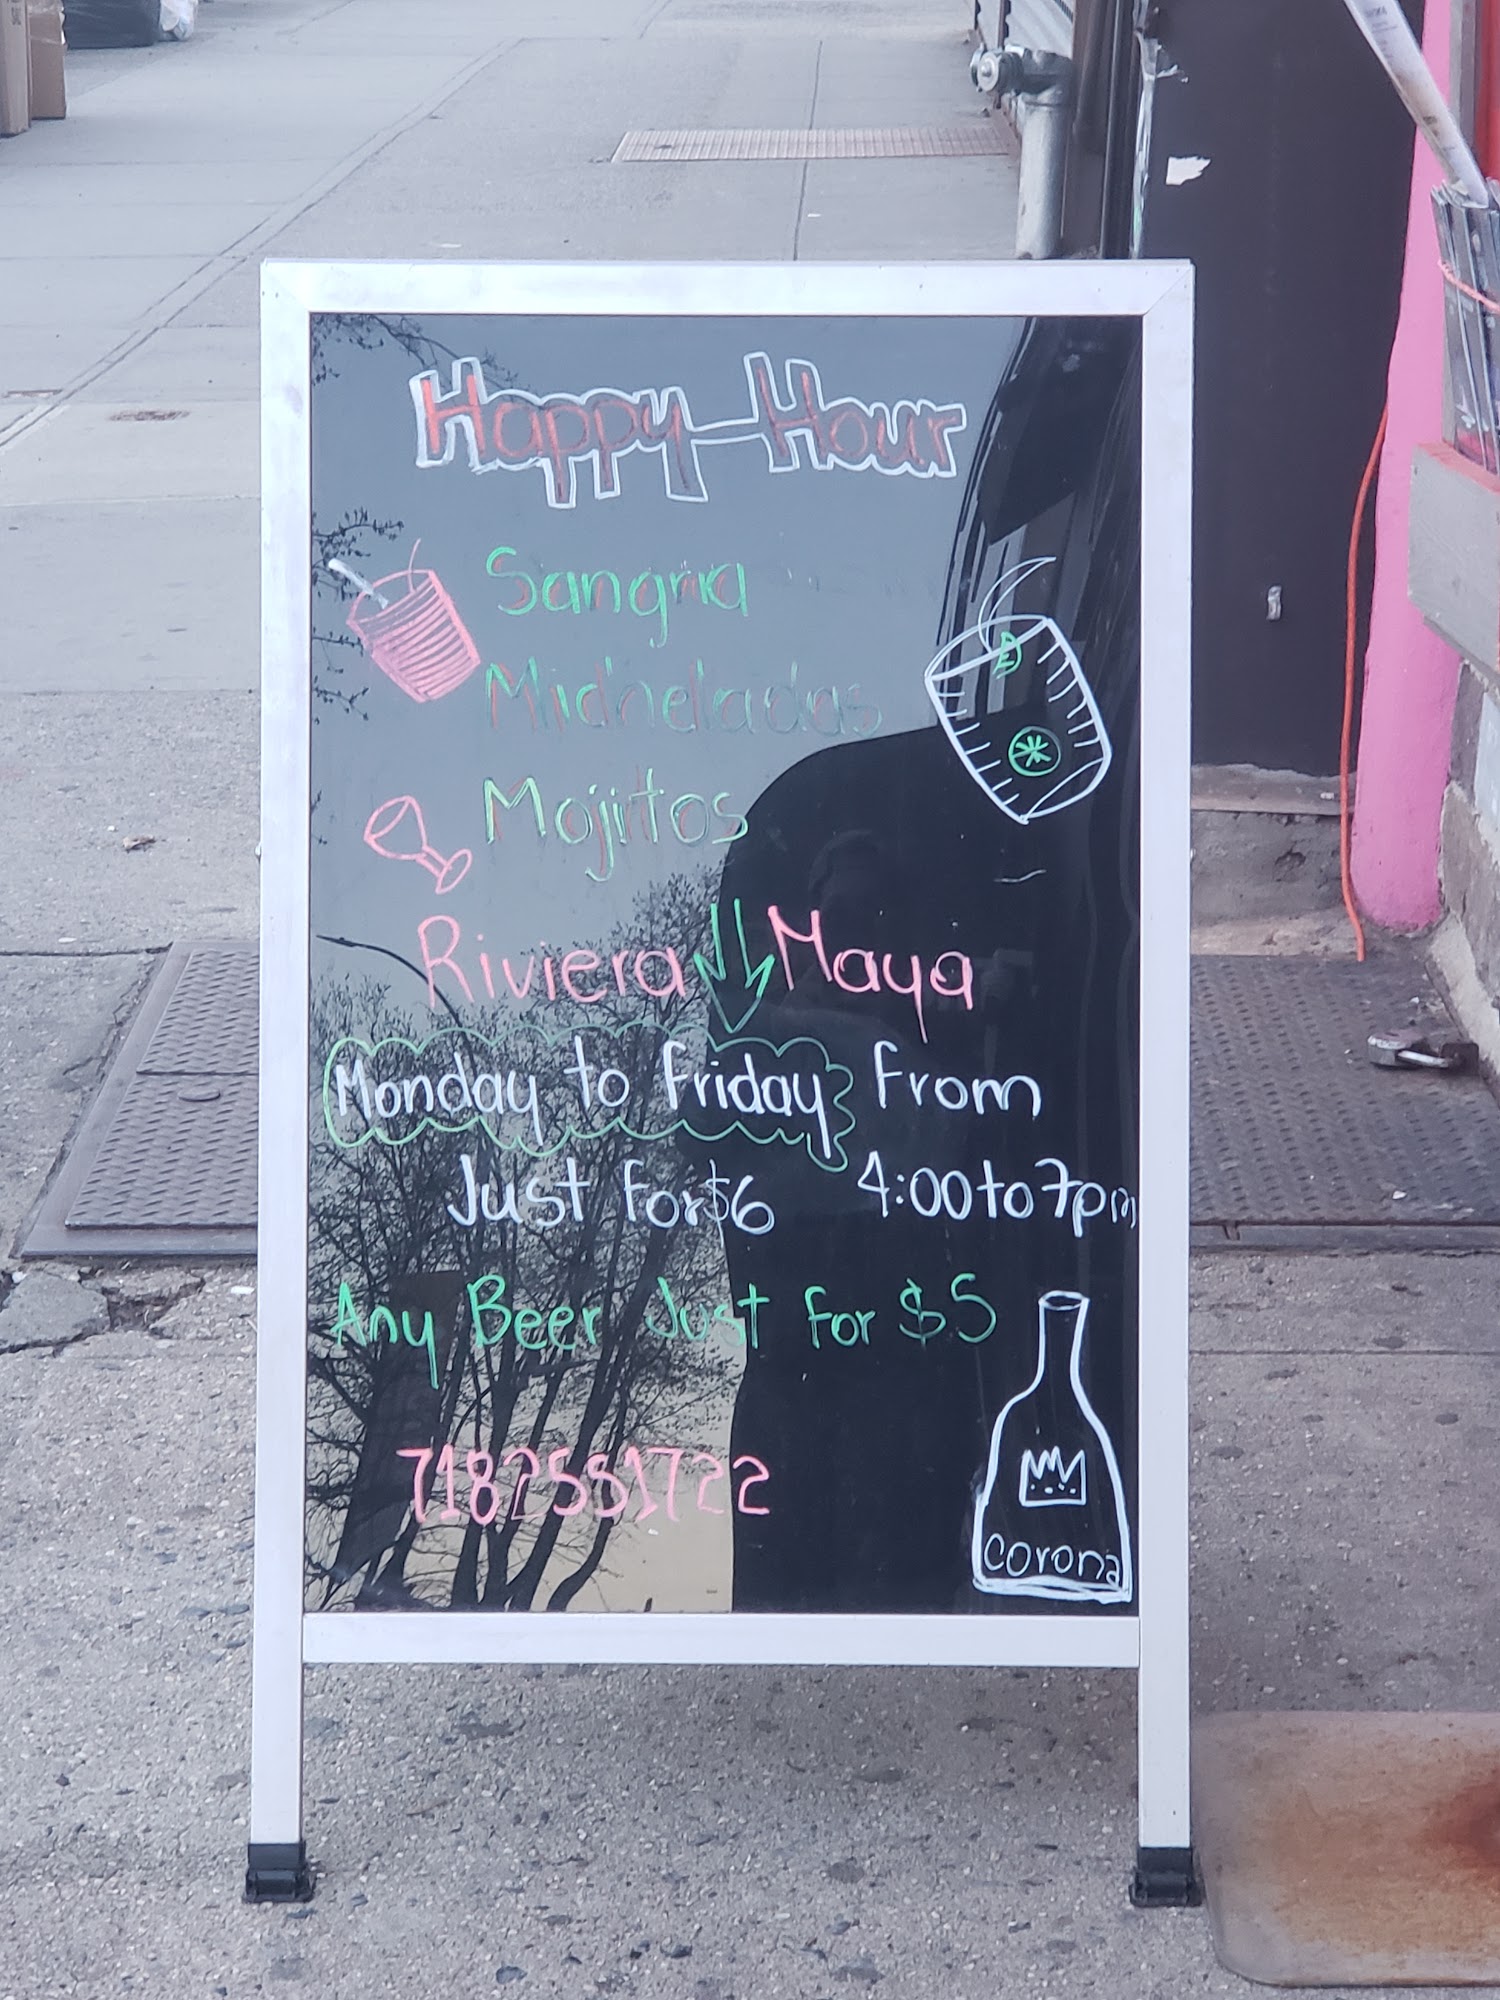 Happy Hour
Sangria
Micheladas
Mojitos
Riviera Maya
Monday to Friday From
Just For $6 4:00 to 7pm
Any Beer Just For $5
7182551722
corona